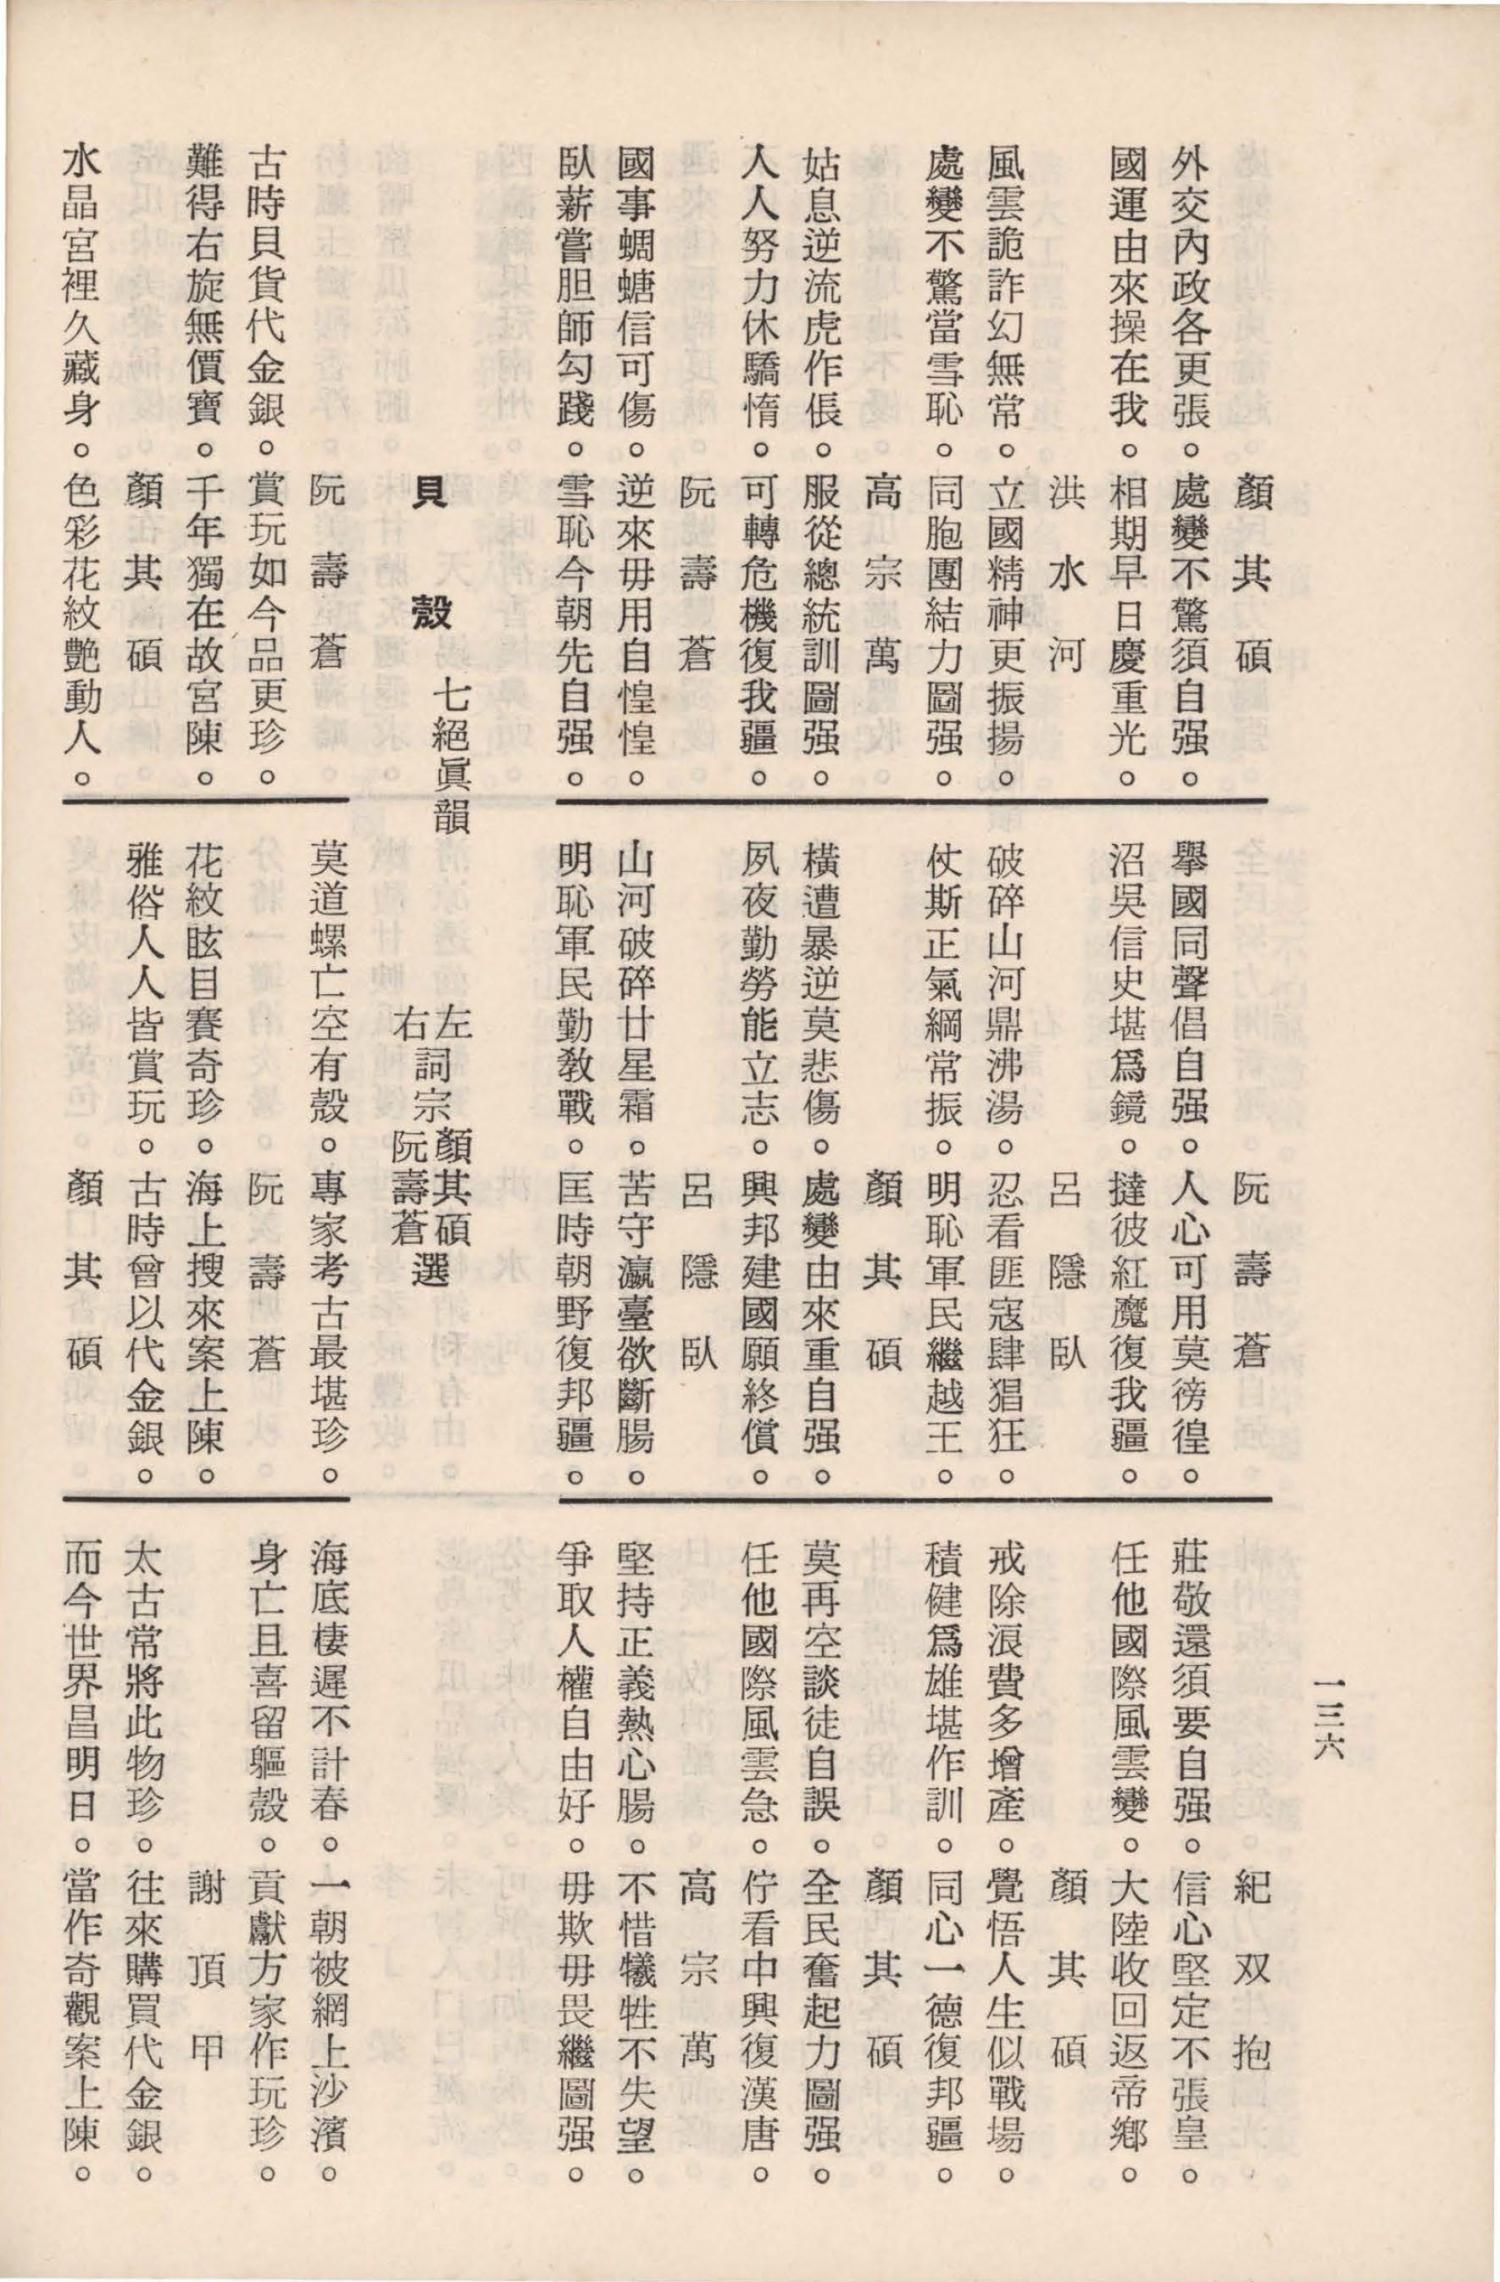 一三六
顏其碩
外交內政各更張。處變不驚須自强。
國運由來操在我。相期早日慶重光。
洪水河
風雲詭詐幻無常。立國精神更振揚。
處變不驚當雪恥。同胞團結力圖强。
高宗萬
姑息逆流虎作倀。服從總統訓圖强。
人人努力休驕惰。可轉危機復我疆。
阮壽蒼
國事蜩螗信可傷。逆來毋用自惶惶。
臥薪嘗胆師勾踐。雪恥今朝先自强。
阮壽蒼
舉國同聲倡自强。人心可用莫徬徨。
沼吳信史堪爲鏡。撻彼紅魔復我疆。
呂隱臥
破碎山河鼎沸湯。忍看匪寇肆猖狂。
仗斯正氣綱常振。明恥軍民繼越王。
顏其碩
橫遭暴逆莫悲傷。處變由來重自强。
夙夜勤勞能立志。興邦建國願終償。
呂隱臥
山河破碎廿星霜。苦守瀛臺欲斷腸。
明恥軍民勤教戰。匡時朝野復邦疆。
紀双抱
莊敬還須要自强。信心堅定不張皇。
任他國際風雲變。大陸收回返帝鄉。
顏其碩
戒除浪費多增產。覺悟人生似戰場。
積健爲雄堪作訓。同心一德復邦疆。
顏其碩
莫再空談徒自誤。全民奮起力圖强。
任他國際風雲急。佇看中興復漢唐。
高宗萬
堅持正義熱心腸。不惜犧牲不失望。
爭取人權自由好。毋欺毋畏繼圖强。
貝殼　七絕眞韻
左詞宗顏其碩
右詞宗阮壽蒼選
阮壽蒼
古時貝貨代金銀。賞玩如今品更珍。
難得右旋無價寶。千年獨在故宮陳。
顏其碩
水晶宮裡久藏身。色彩花紋艷動人。
莫道螺亡空有殼。專家考古最堪珍。
阮壽蒼
花紋眩目賽奇珍。海上搜來案上陳。
雅俗人人皆賞玩。古時曾以代金銀。
顏其碩
海底棲遲不計春。一朝被網上沙濱。
身亡且喜留軀殼。貢獻方家作玩珍。
謝頂甲
太古常將此物珍。往來購買代金銀。
而今世界昌明日。當作奇觀案上陳。